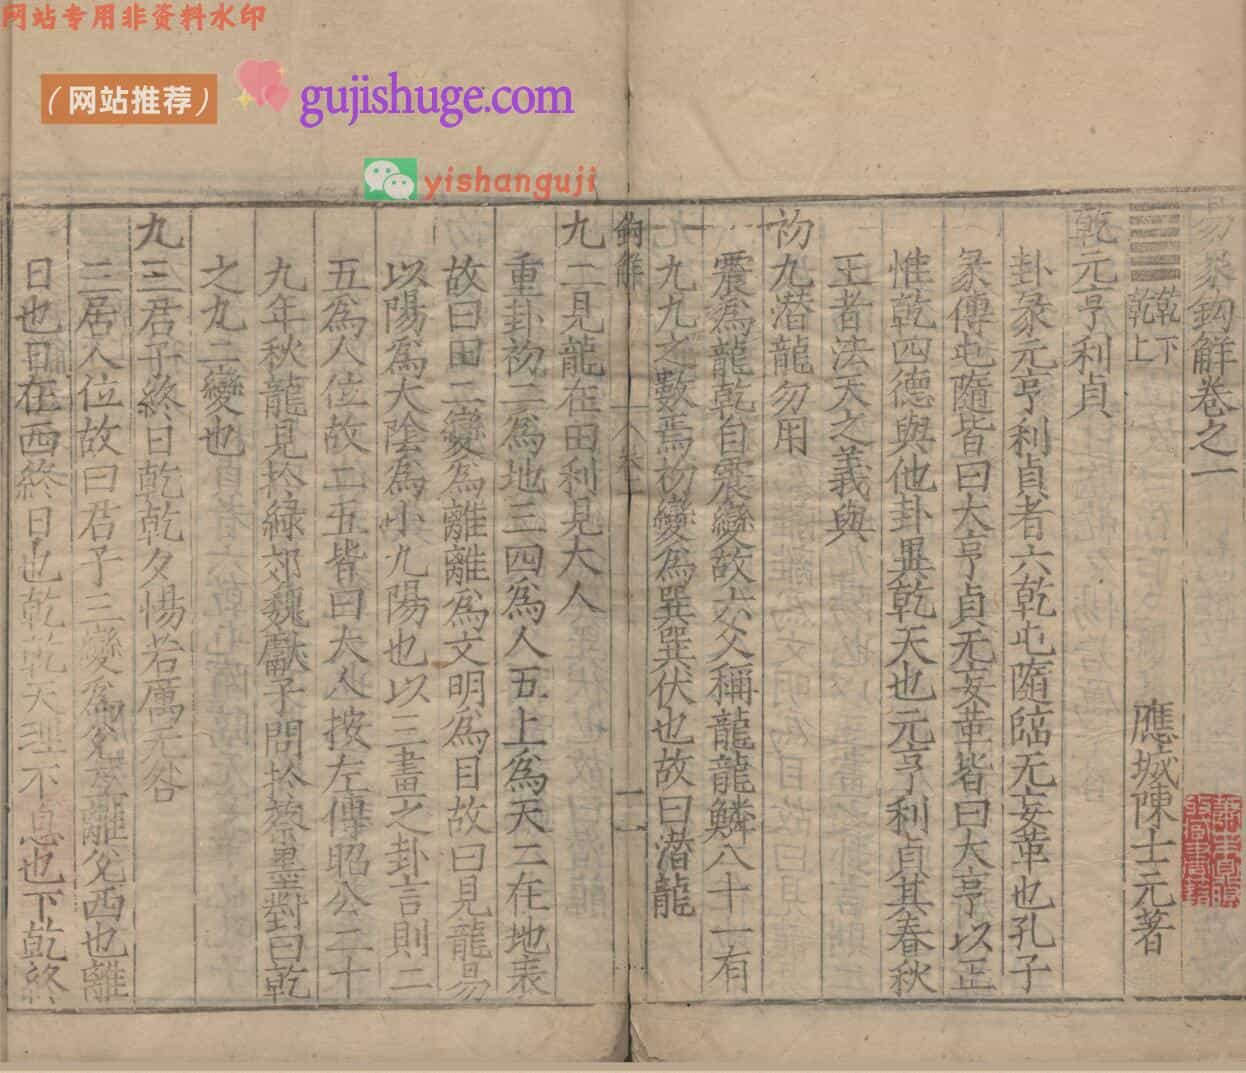 网站专用非资料水印
(网站推荐)
gujishuge.com
yishanguji
易彖鉤解卷之一
乾下
乾上
應城陳士元著
乾元亨利貞
卦彖元亨利貞者六乾屯隨臨无妄革也孔子
彖傳屯隨皆曰大亨貞无妄革皆曰大亨以正
惟乾四德與他卦異乾天也元亨利貞其春秋
王者法天之義與
初九潛龍勿用
震爲龍乾自震變故六爻稱龍龍鱗八十一有
九九之數焉初變爲巽巽伏也故曰潛龍
鉤解
卷一
一
九二見龍在田利見大人
重卦初二爲地三四爲人五上爲天二在地表
故曰田二變爲離離爲文明爲目故曰見龍易
以陽爲大陰爲小九陽也以三畫之卦言則二
五爲人位故二五皆曰大人按左傳昭公二十
九年秋龍見於絳郊魏獻子問於蔡墨對曰乾
之九二變也
九三君子終日乾乾夕惕若厲无咎
三居人位故曰君子三變爲兌互離兌西也離
日也日在西終日也乾乾天理不息也下乾終